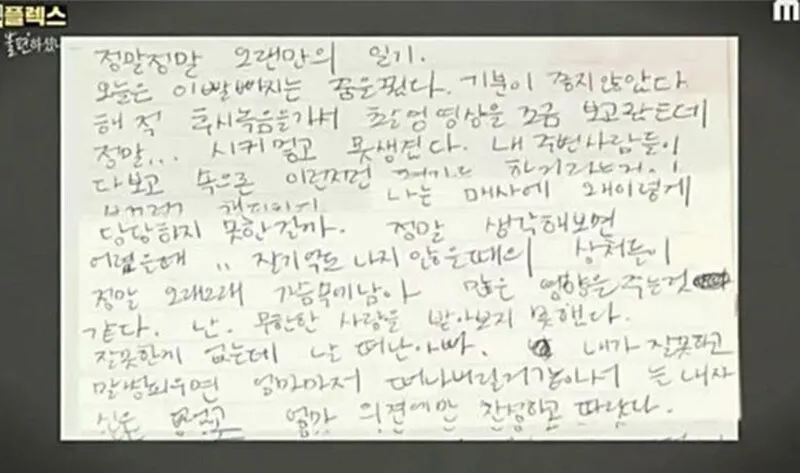 플렉스
정말정말 오랜만의 일기.
오늘은 이빨빠지는 꿈을꿨다. 기분이 좋지않았다
해적 후시녹음을가서 촬영영상을 조금 보고왔는데
정말... 시커멓고 못생겼다. 내 주변사람들이
다보고 속으론 이런저런 얘기도 하겠
나는 매사에 왜이렇게
당당하지 못한걸까. 정말 생각해보면
어렸을때 .. 잘기억도 나지 않을때의 상처들이
정말 오래오래 가슴속에남아 많은 영향을 주는것
같다. 난. 무한한 사랑을 받아보지 못했다.
잘못한게 없는데 날 떠난아빠. 내가 잘못하고
말썽피우면 엄마마저 떠나버릴거같아서 늘 내자
신은 엄마 의견에만 찬성하고 따랐다.